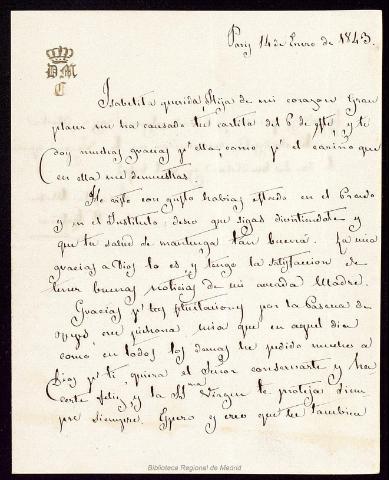 Paris 14 de Enero de 1843.
D M
C
Isabelita querida, Hija de mi corazon Gran
placer me ha causado tu cartita del 6 de este, y te
doy muchas gracias pr ella, como pr el cariño que
en ella me demuestras.
He visto con gusto habias estado en el Prado
y en el Instituto; deseo que sigas divirtiendote y
que tu salud se mantenga tan buena. La mia
gracias a Dios lo es, y tengo la satisfaccion de
tener buenas noticias de mi amada Madre.
Gracias pr tus felicitaciones por la Pascua de
Reyes, cree pichona mia que en aquel dia
como en todos los demas he pedido mucho a
Dios pr ti, quiera el Señor conservarte y ha
certe feliz y la Sma Virgen te proteja siem
pre siempre. Espero y creo que tu tambien
Biblioteca Regional de Madrid